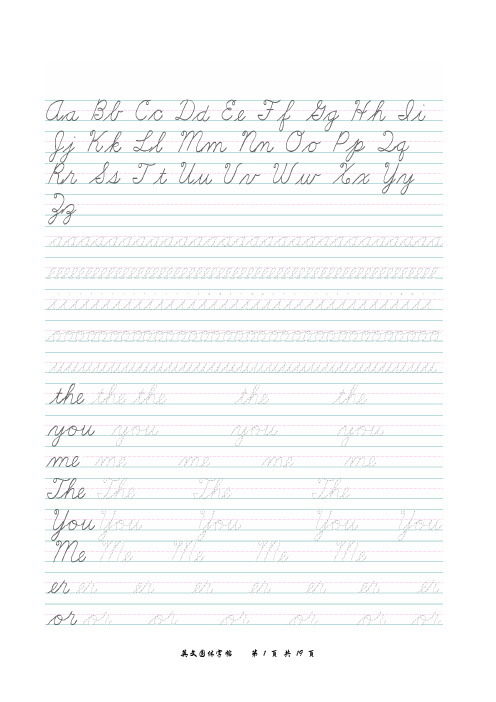 Aa Bb Cc Dd Ee Ff Gg Hh Ii
Jj Kk Ll Mm Nn Oo Pp Qq
Rr Ss Tt Uu Vv Ww Xx Yy
Zz
the the the the the
you you you you
me me me me me
The The The The
You You You You You
Me Me Me Me Me
er er er er er er er er
or or or or or or or or
英文圆体字帖 第 1 页 共 19 页